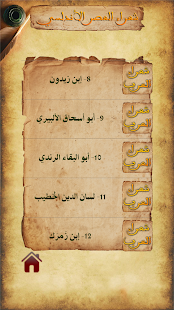 شعراء العصر الأندلسي
8- إبن زيدون
شعراء
العرب
9- أبو أسحاق الألبيري
شعراء
العرب
10- أبو البقاء الرندي
شعراء
العرب
11- لسان الدين الخطيب
شعراء
العرب
12- إبن زمرك
شعراء
العرب